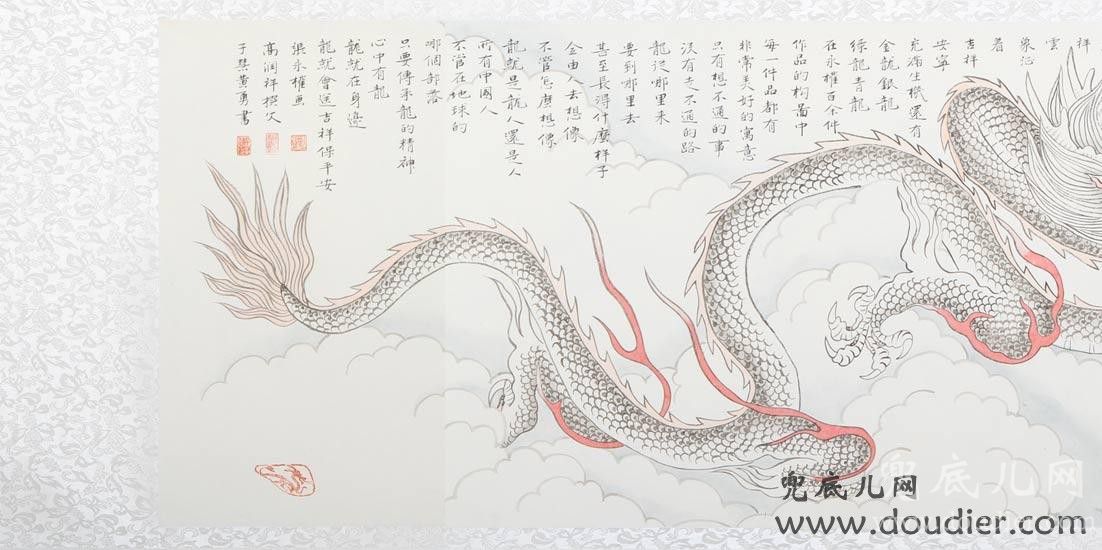 祥
雲
象
着
吉祥
安寧
充滿生機還有
金龍銀龍
綠龍青龍
在永權百余件
作品的构圖中
每一件品都有
非常美好的寓意
只有想不通的事
没有走不通的路
龍從哪里来
要到哪里去
甚至長得什麼样子
全由人去想像
不管怎麼想像
龍就是龍人還是人
所有中國人
不管在地球的
哪個部落
只要傳承龍的精神
心中有龍
龍就在身邊
龍就會送吉祥保平安
張永權画
高润祥撰文
于慧黄勇書
兜底儿网
兜底儿网
www.doudier.com